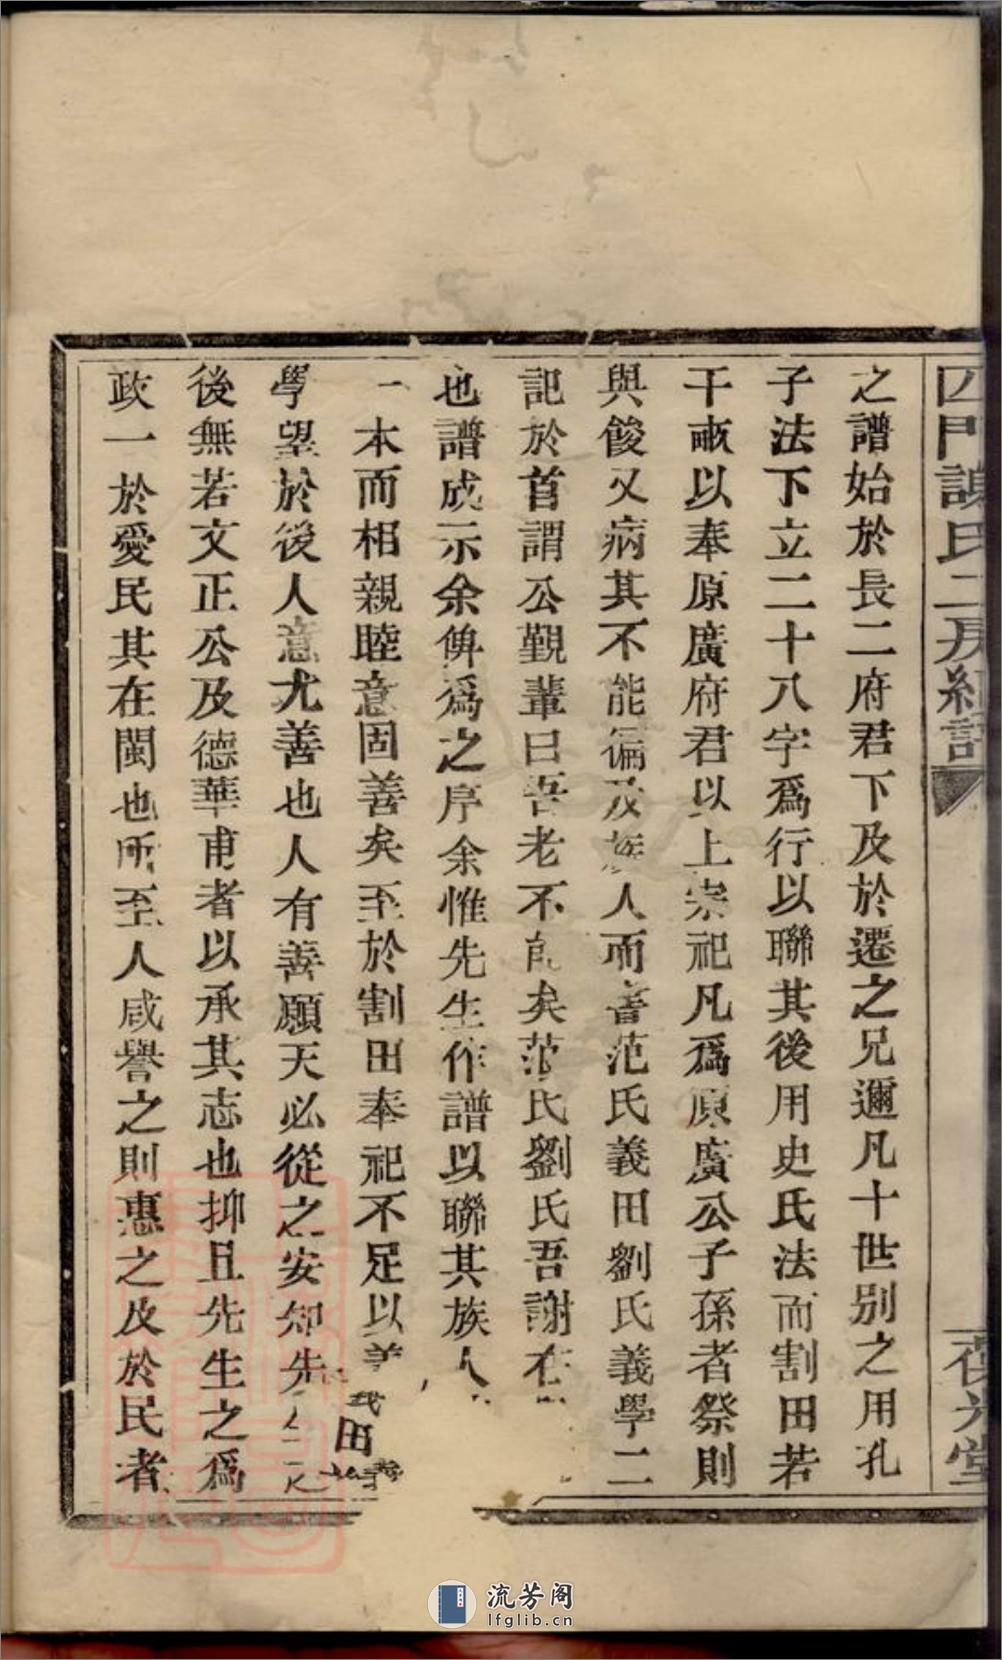 四門謝氏二房紀譜
一在光堂
之譜始於長二府君下及於遷之兄邇凡十世別之用孔
子法下立二十八字爲行以聯其後用史氏法而割田若
干畝以奉原廣府君以上崇祀凡爲原廣公子孫者祭則
與餕又病其不能徧及族人而書范氏義田劉氏義學二
記於首謂公覲輩曰吾老不能矣范氏劉氏吾謝在
也譜成示余俾爲之序余惟先生作譜以聯其族人
一本而相親睦意固善矣至於割田奉祀不足以義田
學望於後人意尤善也人有善願天必從之安知先
後無若文正公及德華甫者以承其志也抑且先生之爲
政一於愛民其在閩也所至人咸譽之則惠之及於民者
流芳阁
lfglib.cn